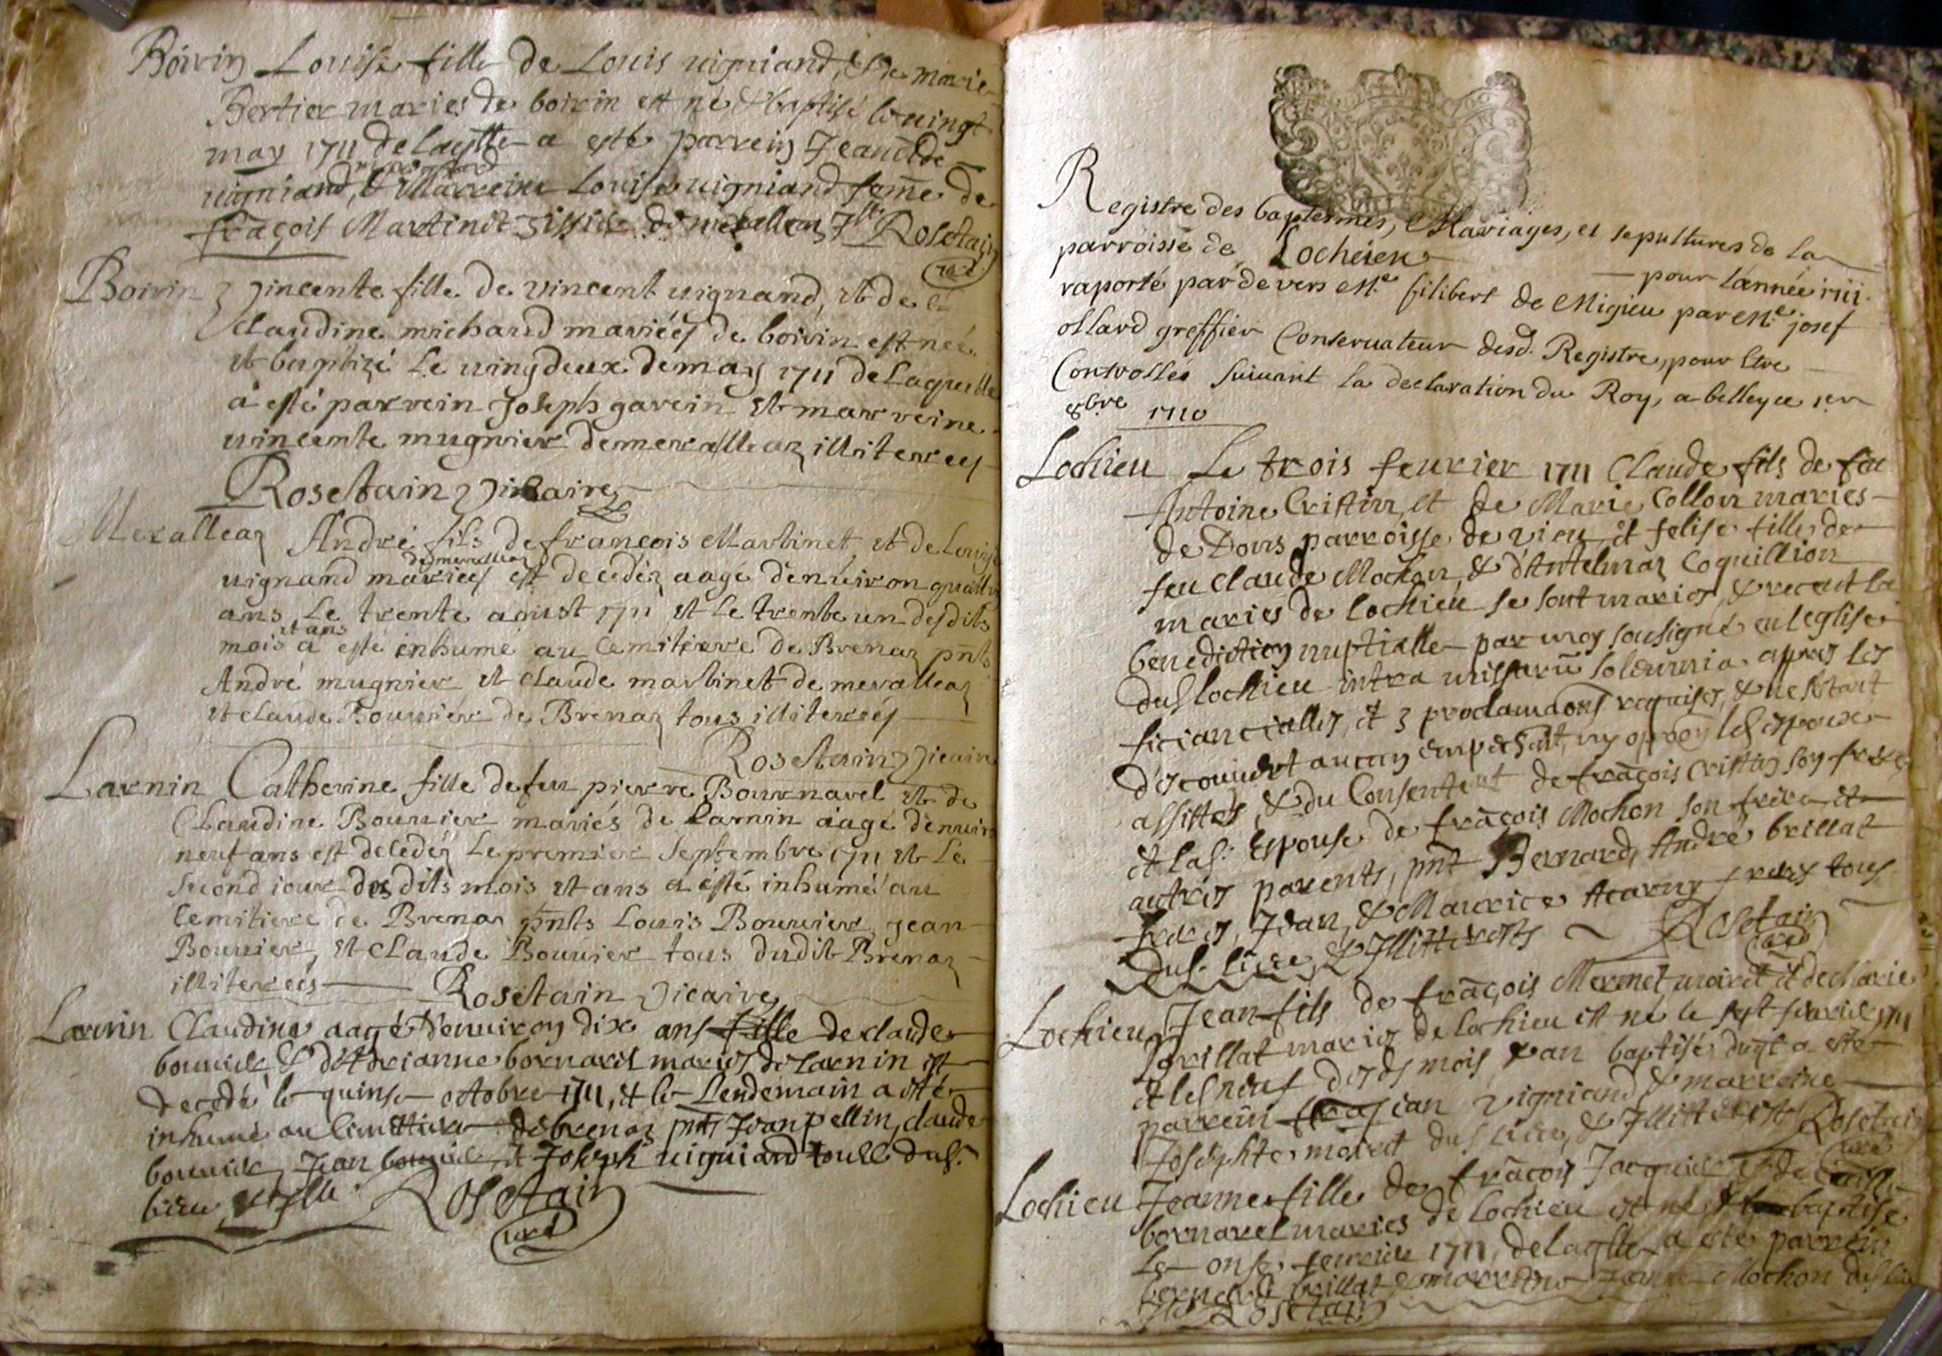 Boivin Louise fille de Louis vigniand, & de marie
Bertier maries de boivin est né & baptisé le vingt
may 1711 de laqlle a esté parrein Jean
vigniand, & Marreine Louise vigniand feme de
fraçois Martinet
Rosetain
curé
Boivin vincente fille de vincent vignand, et de
claudine michaud mariées de boivin est née
et baptizé Le vingdeux de may 1711 de Laquelle
a esté parrein Joseph gavein et marreine
vincente mugnier de meralleaz illiterees
Rosetain vicaire
Meralleaz André fils de françois Martinet, et de Louise
de meralleaz
vignand mariees est decedéz aagé d'enuiron quattre
ans Le trente aoust 1711 et Le trente un desdits
et ans
mois a esté inhumé au Cemitierre de Brenaz pnts
André mugnier et claude martinet de meralleaz
et claude Bouvier de Brenaz tous illiterées
Rosetain vicaire
Larnin Catherine fille de feu pierre Bournarel et de
Claudine Bouvier mariés de Larnin aagé d'enuiron
neuf ans est decedéz Le premier Septembre 1711 et Le
second iour desdits mois et ans a ésté inhumé au
Cemitiere de Brenaz pnts Louis Bouvier, jean
Bouvier, et Claude Bouvier tous dudit Brenaz
illiterées Rosetain vicaire
Larnin Claudine aagé d'enuiron dix ans fille de claude
bouvier & d'Adrianne bornarel maries de Larnin est
decedé le quinse octobre 1711, & le Lendemain a esté
inhumé au Cimittiere de brenaz pnts Jean pellin, claude
bouvier, Jean bouvier & Joseph vigniand
Rosetain
curé
Registre des baptesmes, Mariages, et sepultures de La
parroisse de Lochieu pour L'année 1711.
raporté par devers Me filibert de Migieu par Me josef
ollard greffier Conservateur desd. Registre, pour Etre
Controlles suivant la declaration du Roy, a belley ce 1er
8bre 1710
Lochieu Le trois feurier 1711 Claude fils de feu
Antoine Cristin, et de Marie Collon maries
de Dons parroisse de vieu, & felise fille de
feu Claude Mochon, & d'Antelmaz Coquillion
maries de Lochieu se sont maries, & receut la
benediction nuptialle par moy sousigné en l'eglise
dud Lochieu intra missaru solemnia apres les
ficiancialles, & 3 proclamaons requises, & ne s'etant
descouuert aucun empeschmt, ny oppoon les espoux
assistes, & du Consentemt de fraçois Cristin son frere
& lad. Espouse de fraçois Mochon son frere &
autres parents, pnt Bernard, André brillat
freres, Jean, & Maurice Acarny freres tous
dud. Lieu, & Illitterests
Rosetain
curé
Lochieu Jean fils de fraçois Mermet moiret & de Marie
brillat maries de lochieu est né le sept feurier 1711
& le neuf desds mois & an baptisé duql a esté
parrein Jean vigniand, & marreine
Josephte moiret dud Lieu, & Illitterests Rosetain
curé
Lochieu Jeanne fille de fraçois Jacquier & de
bornarel maries de Lochieu est né & baptise
Le onse feurier 1711, de laqlle a esté parrein
bernard brillat & marreine Jeane Mochon dud lieu
Rosetain